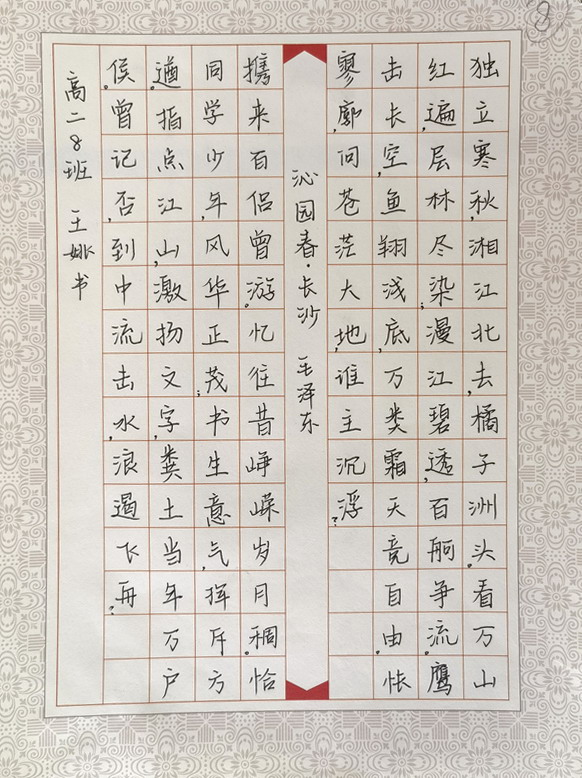 8
独立寒秋,湘江北去,橘子洲头。看万山
红遍,层林尽染;漫江碧透,百舸争流。鹰
击长空,鱼翔浅底,万类霜天竞自由。怅
寥廓,问苍茫大地,谁主沉浮?
沁园春·长沙 毛泽东
携来百侣曾游。忆往昔峥嵘岁月稠。恰
同学少年,风华正茂;书生意气,挥斥方
遒。指点江山,激扬文字,粪土当年万户
侯。曾记否,到中流击水,浪遏飞舟?
高二8班 王姚书